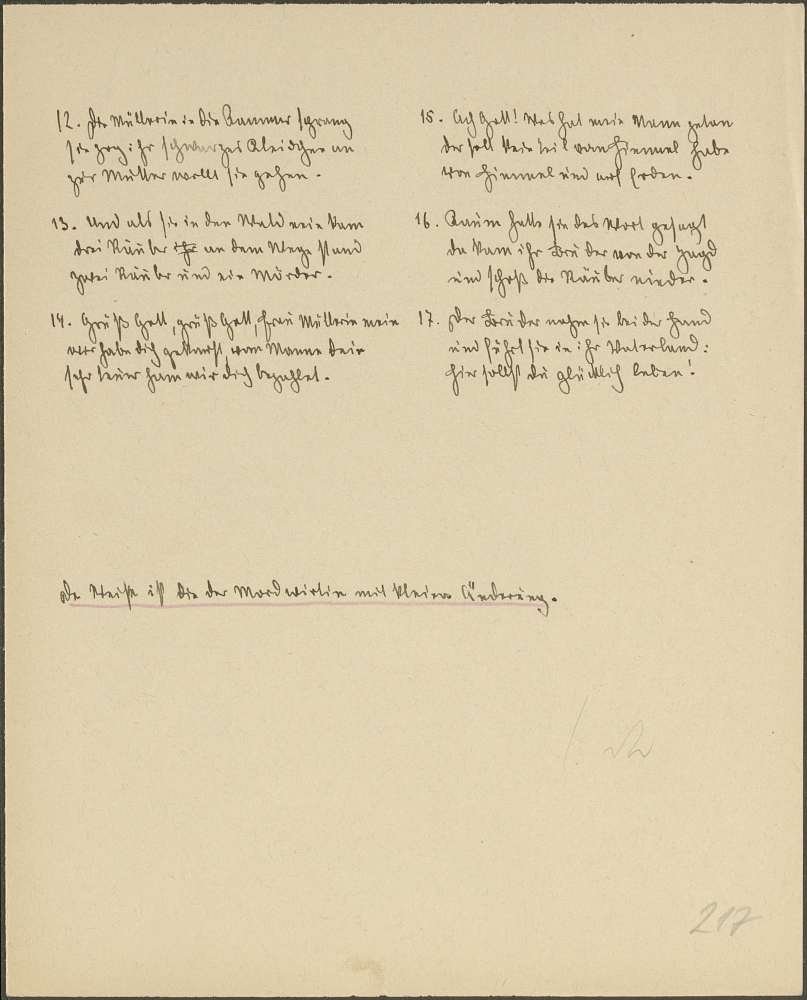 12. Die Müllerin in die Kammer sprang
sie zog ihr schwarzes Kleidchen an
zur Mutter wollt sie gehen.
13. Und als sie in den Wald nein kam
drei Räuber ihr an dem Wege stand
zwei Räuber und ein Mörder.
14. Grüß Gott, grüß Gott, Frau Müllerin mein
wir habe dich gekauft, vom Manne dein
sehr teuer ham wir dich bezahlet.
15. Ach Gott! Was hat mein Mann getan
der soll kein Teil vom Himmel habe
vom Himmel und auf Erden.
16. Kaum hatte sie das Wort gesagt
da kam ihr Bruder von der Jagd
und schoß die Räuber nieder.
17. Der Bruder nahm sie bei der Hand
und führt sie in ihr Vaterland:
Hier sollst du glücklich leben!
Die Weise ist die der Mordwirtin mit kleiner Änderung.
217